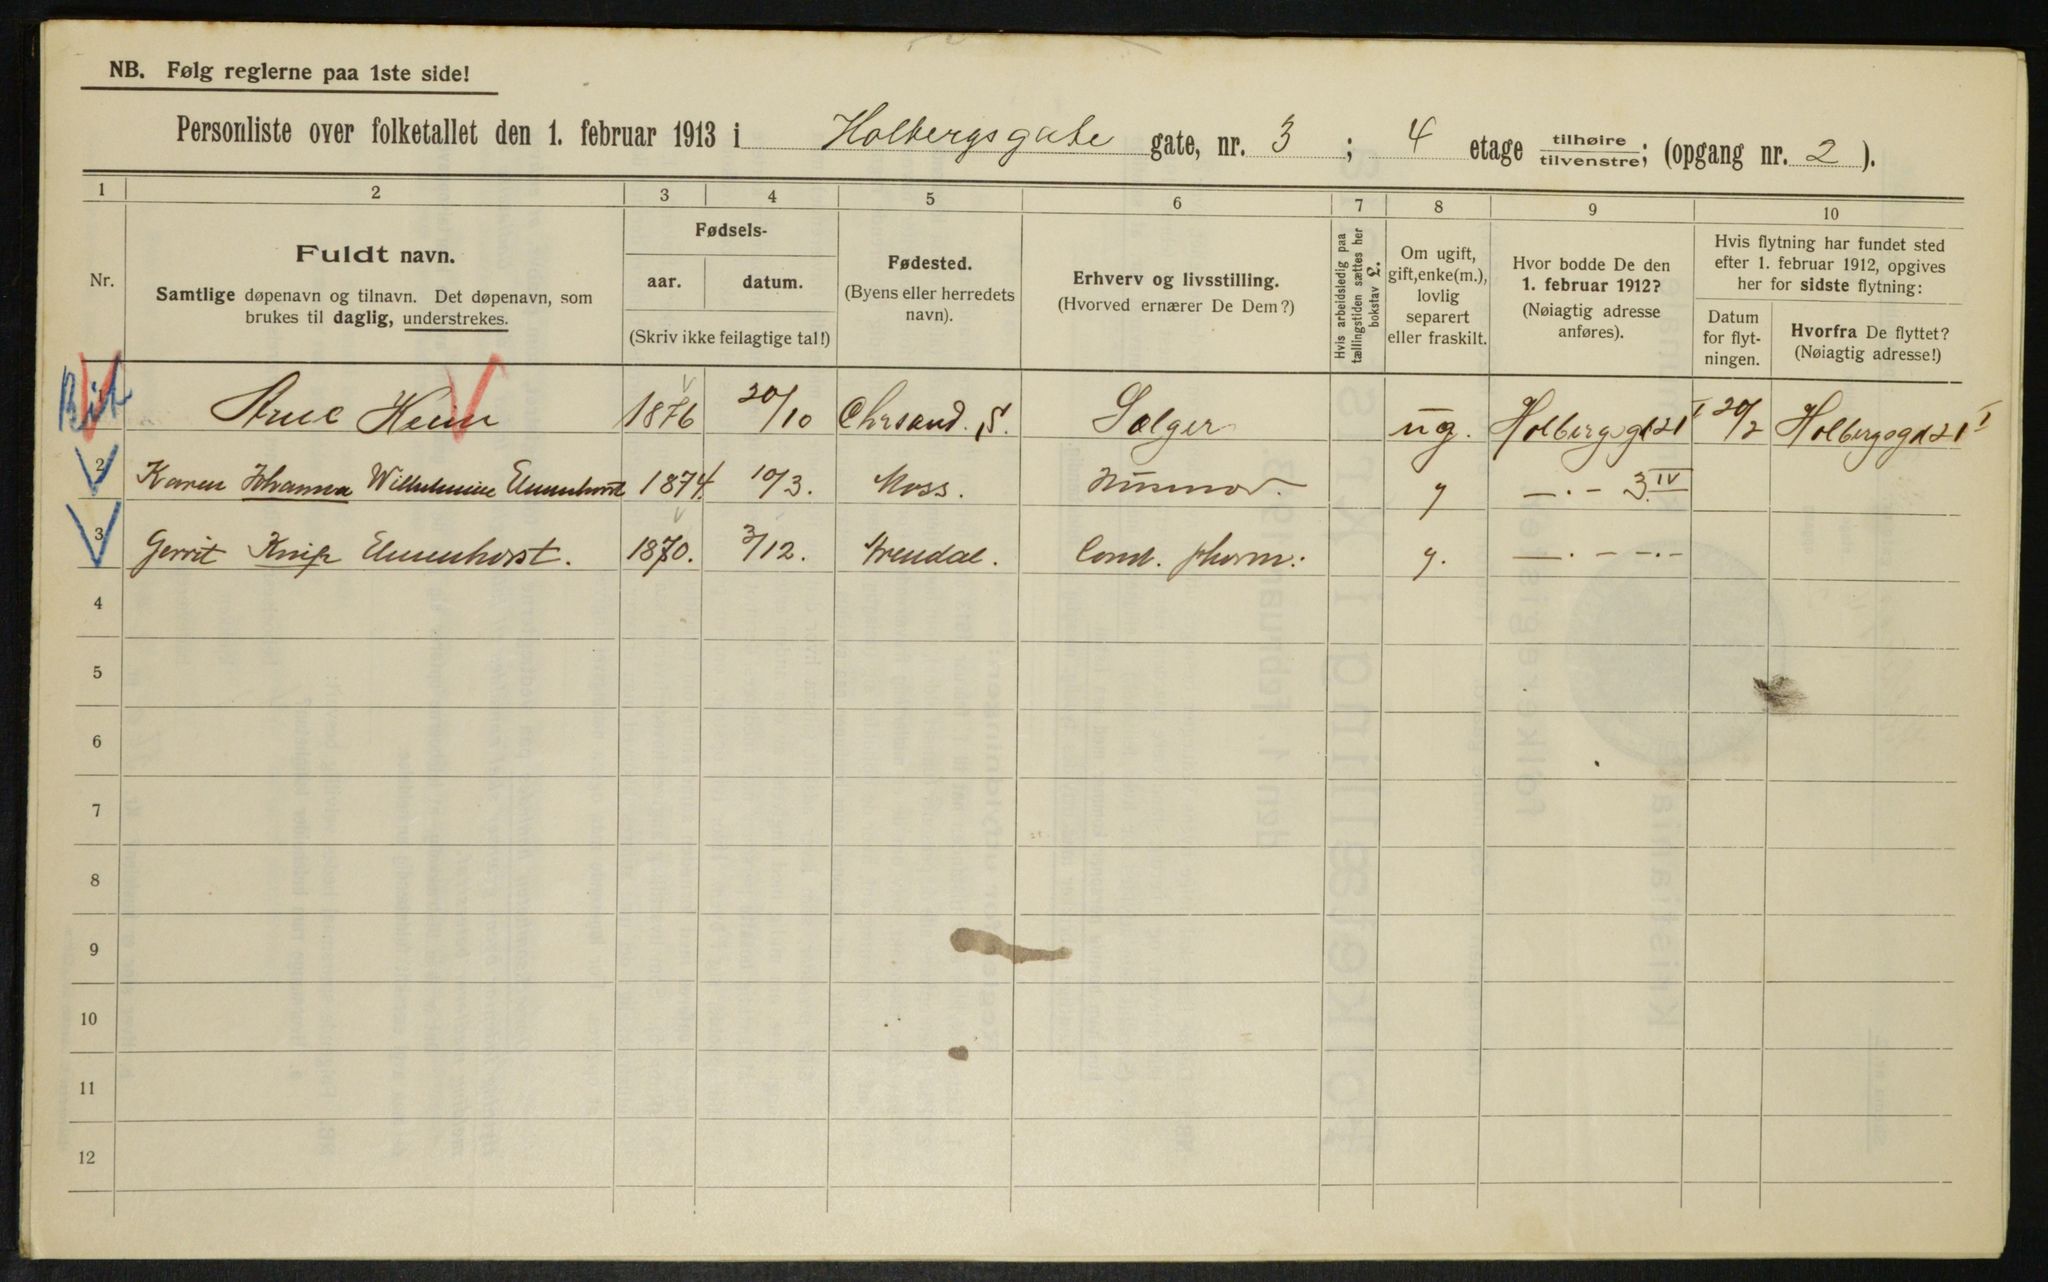 NB. Følg reglerne paa 1ste side!
Personliste over folketallet den 1. februar 1913 i Holbergsgate gate, nr. 3 ; 4 etage tilhøire/tilvenstre; (opgang nr. 2 ).
1 2 3 4 5 6 7 8 9 10
Nr.
Fuldt navn.
Samtlige døpenavn og tilnavn. Det døpenavn, som
brukes til daglig, understrekes.
Fødsels-
aar. datum.
(Skriv ikke feilagtige tal!)
Fødested.
(Byens eller herredets
navn).
Erhverv og livsstilling.
(Hvorved ernærer De Dem?)
Hvis arbeidsledig paa
tællingstiden sættes her
bokstav L.
Om ugift,
gift, enke(m.),
lovlig
separert
eller fraskilt.
Hvor bodde De den
1. februar 1912?
(Nøiagtig adresse
anføres).
Hvis flytning har fundet sted
efter 1. februar 1912, opgives
her for sidste flytning:
Datum
for flyt-
ningen.
Hvorfra De flyttet?
(Nøiagtig adresse!)
Heim 1876 20/10 Chrsand. S. Sælger ug. Holbergsgd 21 I 20/2 Holbergsgd 21 I
2 Karen Johanna Wilhelmine Elmenhorst 1874. 10/3. Moss. g —.— 3 IV
3 Gerrit Knip Elmenhorst. 1870. 3/12. Arendal. Cand. pharm. g. —.— —.—
4
5
6
7
8
9
10
11
12